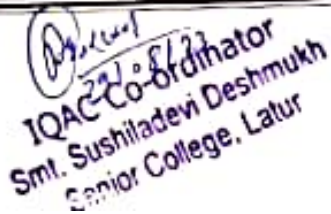 IQAC Co-ordinator
Smt. Sushiladevi Deshmukh
Senior College, Latur